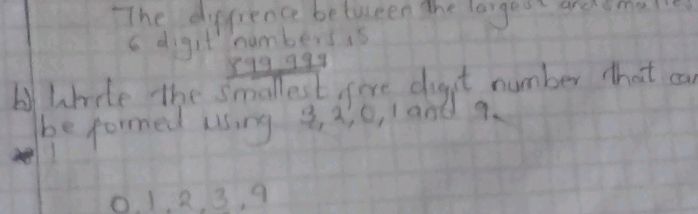 The diffrence between the largest and smalles
6 digit numbers is
899 999
b) Write the smallest five digit number that can
be formed using 3, 2, 0, 1 and 9.
0, 1, 2, 3, 9